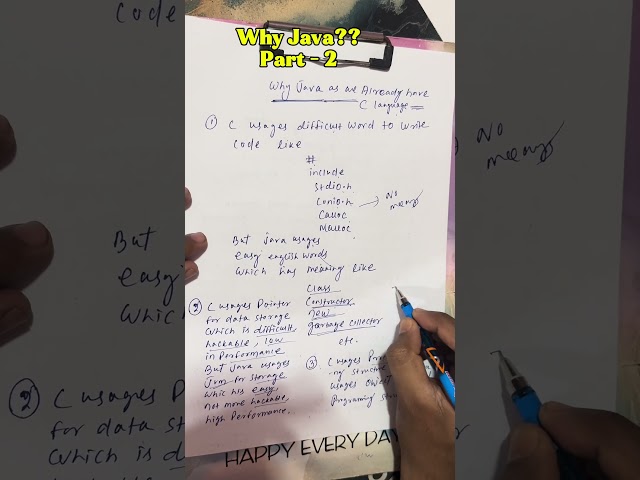 Why Java??
Part - 2
Why Java as we Already have
C language
① C usages difficult word to write
code like
#
include
stdio.h
conio.h → No meang
Calloc
Malloc
But Java usages
easy english words
which has meaning like
Class
Constructor
new
garbage collector
etc.
② C usages Pointer
for data storage
which is difficult,
hackable, low
in Performance
But Java usages
Jvm for storage
which is easy,
not more hackable,
high Performance.
③ C usages
ing struc
usages Object
Programing
HAPPY EVERY DAY
No
meang
But
easy
whic
② C usages P
for data st
which is d